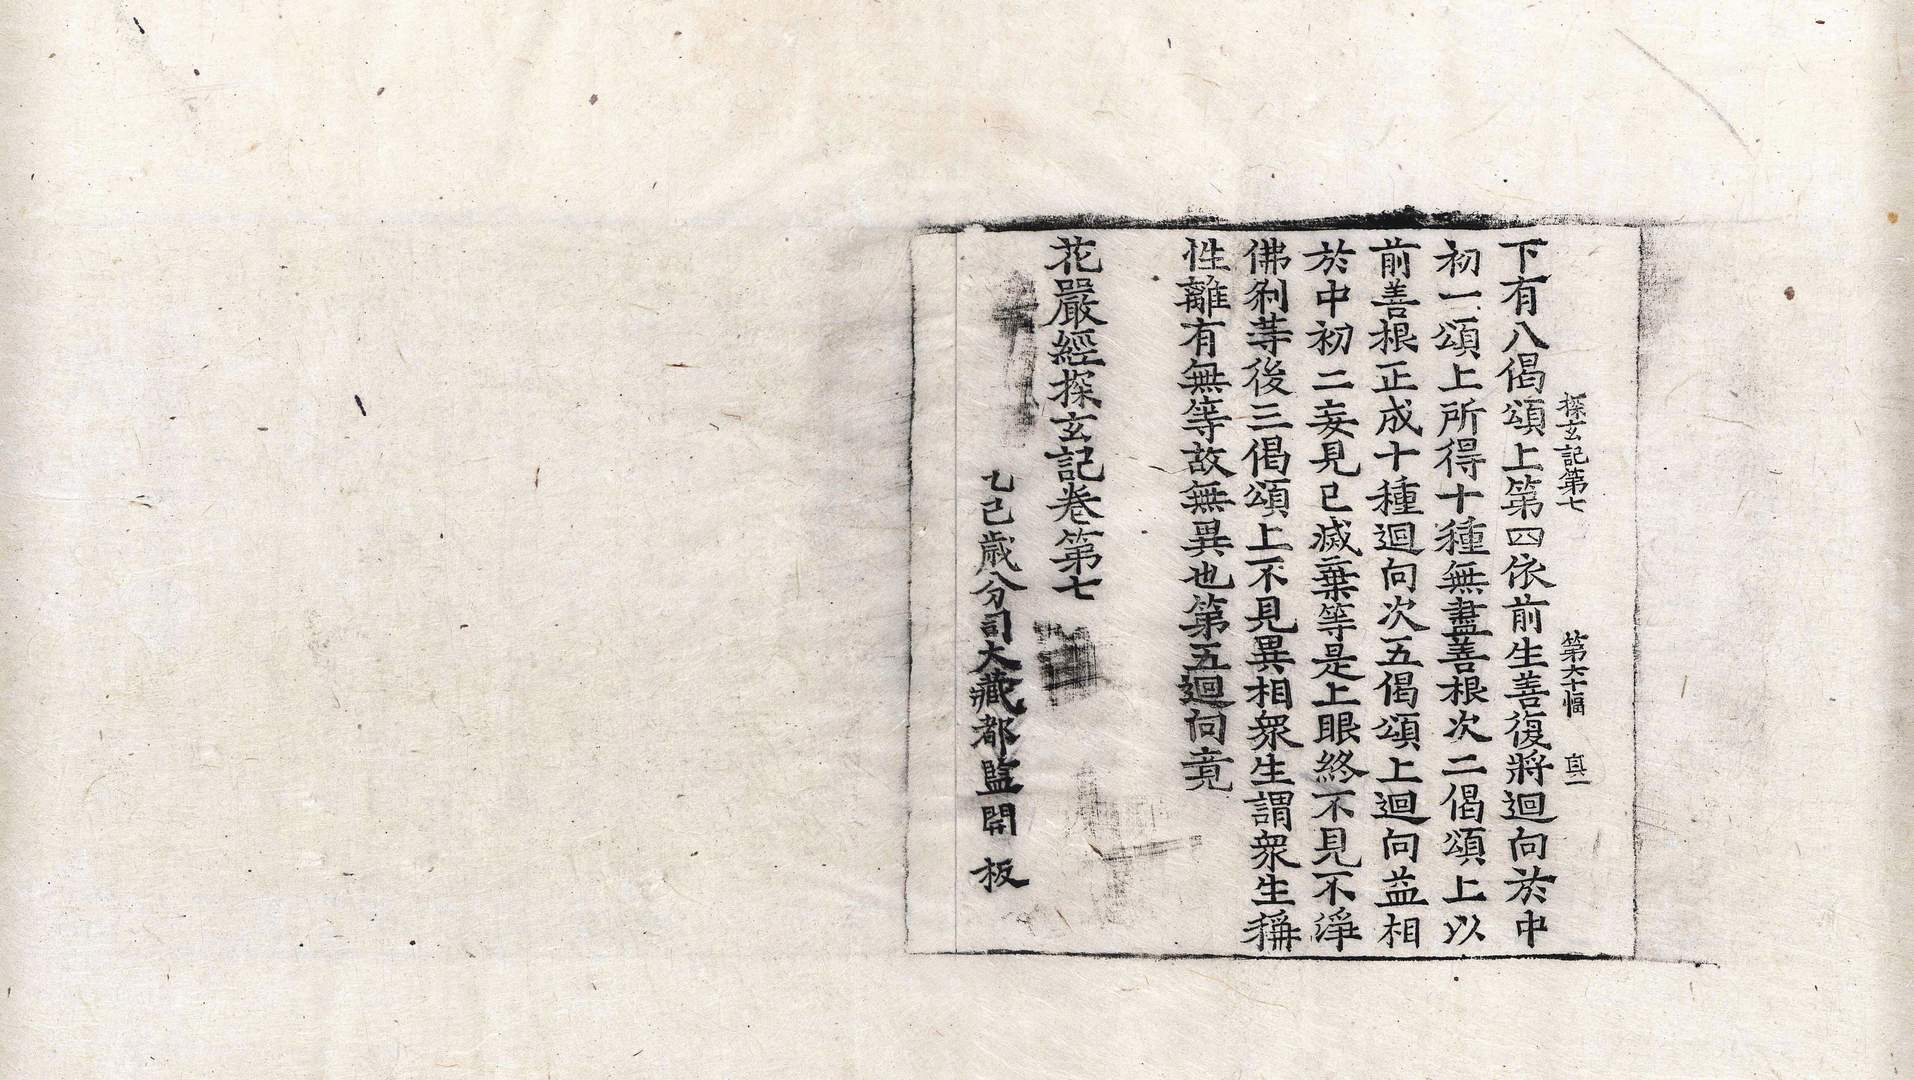 探玄記第七 第六十幅 真一
下有八偈頌上第四依前生善復將迴向於中
初一頌上所得十種無盡善根次二偈頌上以
前善根正成十種迴向次五偈頌上迴向益相
於中初二妄見已滅棄等是上眼終不見不淨
佛刹等後三偈頌上不見異相衆生謂衆生稱
性離有無等故無異也第五迴向竟
花嚴經探玄記卷第七
乙巳歲分司大藏都監開板